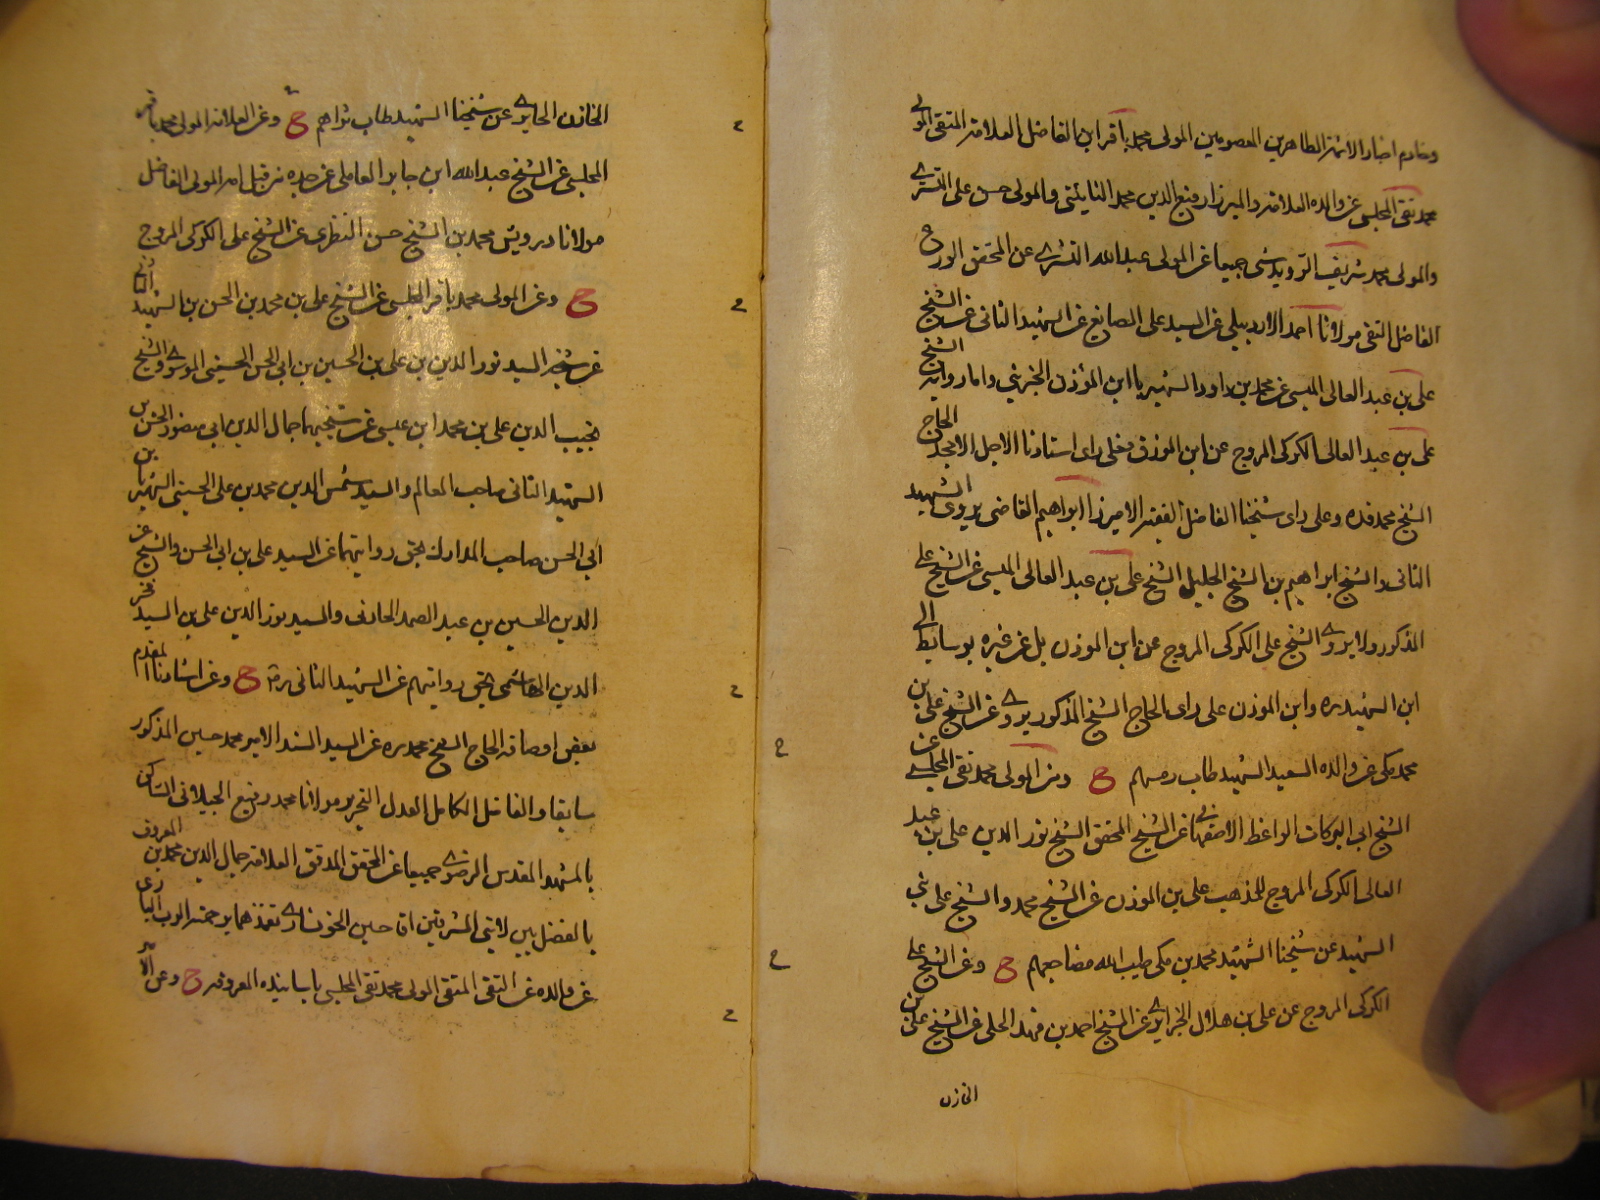 وخادم اخبار الائمة الطاهرين المعصومين المولى محمد باقر ابن الفاضل العلامة المتقى المولى
محمد تقى المجلسى عن والده العلامة والميرزا رفيع الدين محمد النائينى والمولى حسن على التسترى
والمولى محمد شريف الرويدشتى جميعا عن المولى عبدالله التسترى عن المحقق الورع
الفاضل التقى مولانا احمد الاردبيلى عن السيد على الصايغ عن الشهيد الثانى عن الشيخ
على بن عبد العالى الميسى عن محمد بن داود الشهير بابن المؤذن الجزينى واما رواية الشيخ
على بن عبد العالى الكركى المروج عن ابن الموذن فعلى راى استادنا الاجل الامجد الحاج
الشيخ محمد قده وعلى راى شيخنا الفاضل الفقيه الاميرزا ابراهيم القاضى يروى الشهيد
الثانى والشيخ ابراهيم بن الشيخ الجليل الشيخ على بن عبد العالى الميسى عن الشيخ على
المذكور ولا يروى الشيخ على الكركى المروج عن ابن الموذن بل عن غيره بوسايط الى
ابن الشهيد ره وابن الموذن على راى الحاج الشيخ المذكور يروى عن الشيخ على بن
محمد مكى عن والده السعيد الشهيد طاب رمسهم ح ومن المولى محمد تقى المجلسى عن
الشيخ ابى البركات الواعظ الاصفهانى عن الشيخ المحقق الشيخ نور الدين على بن عبد
العالى الكركى المروج للمذهب على بن الموذن عن الشيخ محمد والشيخ على بنى
الشهيد عن شيخنا الشهيد محمد بن مكى طيب الله مضاجعهم ح وعن الشيخ على
الكركى المروج عن على بن هلال الجزايرى عن الشيخ احمد بن فهد الحلى عن الشيخ على بن
الخازن
الخازن الحايرى عن شيخنا الشهيد طاب ثراهم ح وعن العلامة المولى محمد باقر
المجلسى عن الشيخ عبدالله ابن جابر العاملى عن جده من قبل امه المولى الفاضل
مولانا درويش محمد بن الشيخ حسن النطنزى عن الشيخ على الكركى المروج
ح وعن المولى محمد باقر المجلسى عن الشيخ على بن محمد بن الحسن بن الشهيد الثانى
عن شيخه السيد نور الدين بن على بن الحسين بن ابى الحسن الحسينى الموسوى والشيخ
نجيب الدين على بن محمد ابن عيسى عن شيخيهما جمال الدين ابى منصور الحسن بن
الشهيد الثانى صاحب المعالم والسيد شمس الدين محمد بن على الحسينى الشهير بابن
ابى الحسن صاحب المدارك بحق روايتهما عن السيد على بن ابى الحسن والشيخ عز
الدين الحسين بن عبد الصمد الحارثى والسيد نور الدين على بن السيد فخر
الدين الهاشمى بحق روايتهم عن الشهيد الثانى ره ح وعن استادنا المقدم
بعض اوصافه الحاج الشيخ محمد ره عن السيد السند الامير محمد حسين المذكور
سابقا والفاضل الكامل العدل النحرير مولانا محمد رفيع الجيلانى الساكن
بالمشهد المقدس الرضوى جميعا عن المحقق المدقق العلامة جمال الدين محمد بن المعروف
بالفضل بين لابتى المشرقين اقا حسين الخونسارى تغمدهما برحمته الرب البارى
عن والده عن التقى المتقى المولى محمد تقى المجلسى باسانيده المعروفه ح وعن